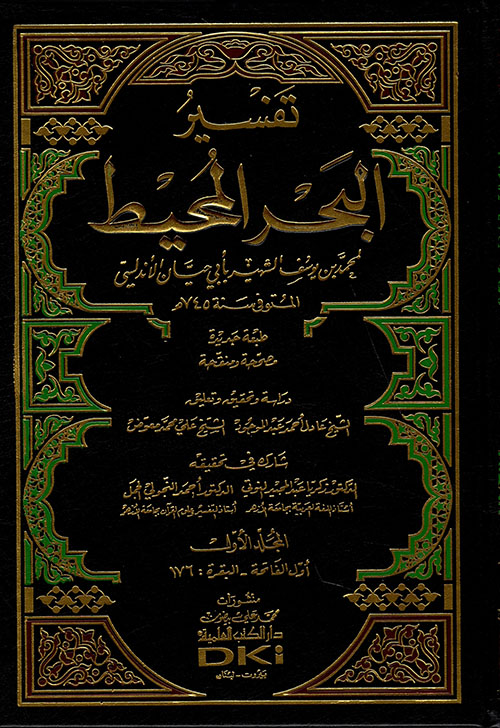 تفسير
البحر المحيط
لمحمد بن يوسف الشهير بأبي حيان الأندلسي
المتوفى سنة ٧٤٥ هـ
طبعة جديدة
مصححة ومنقحة
دراسة وتحقيق وتعليق
الشيخ عادل أحمد عبد الموجود الشيخ علي محمد معوض
شارك في تحقيقه
الدكتور زكريا عبد المجيد النوتي الدكتور أحمد النجولي الجمل
أستاذ اللغة العربية بجامعة الأزهر أستاذ التفسير وعلوم القرآن بجامعة الأزهر
المجلد الأول
أول الفاتحة - البقرة : ١٧٦
منشورات
محمد علي بيضون
دار الكتب العلمية
DKi
بيروت - لبنان